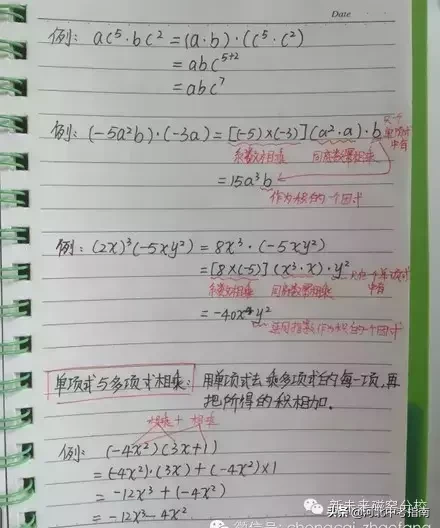 Date
例: ac⁵·bc² = (a·b)·(c⁵·c²)
= abc⁵⁺²
= abc⁷
例: (-5a²b)·(-3a) = [(-5)×(-3)](a²·a)·b 只一个单项式中有
系数相乘 同底数幂相乘
= 15a³b
作为积的一个因式
例: (2x)³(-5xy²) = 8x³·(-5xy²)
= [8×(-5)](x³·x)·y² 只在一个单项式中有
系数相乘 同底数幂相乘
= -40x⁴y²
连同指数作为积的一个因式
单项式与多项式相乘: 用单项式去乘多项式的每一项,再
把所得的积相加.
相乘 + 相乘
例: (-4x²)(3x+1)
= (-4x²)·(3x)+(-4x²)×1
= -12x³+(-4x²)
= -12x³-4x²
新未来磁窑分校
头条@河北中考指南